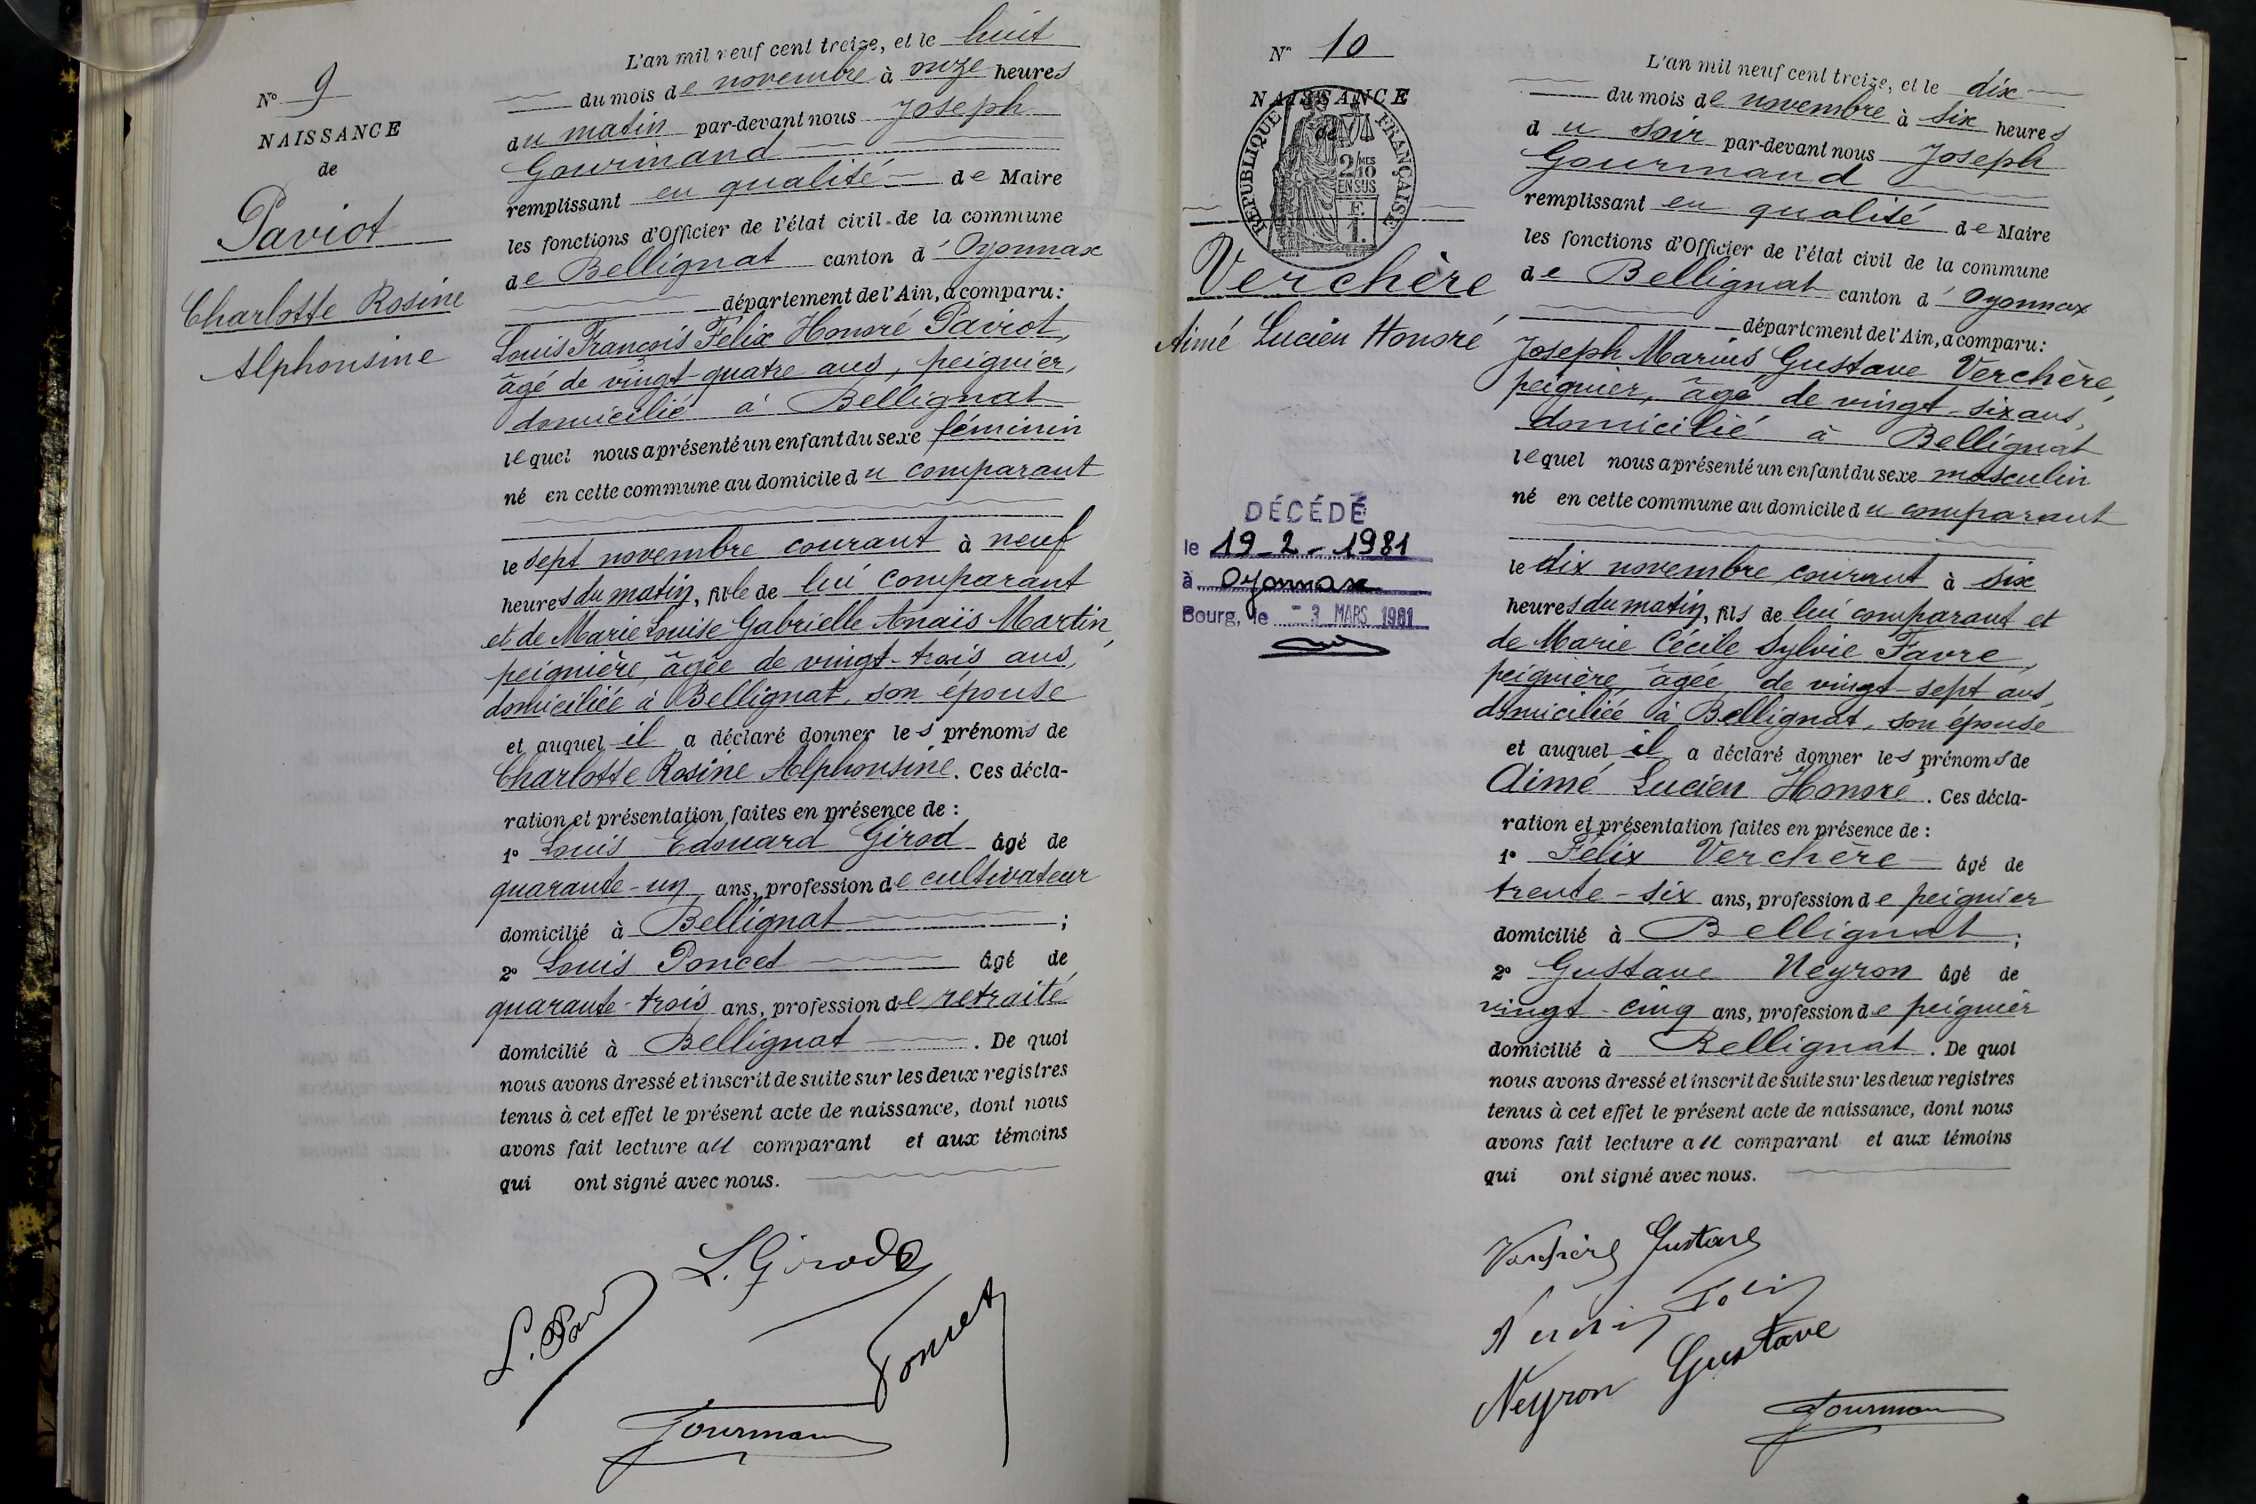 N° 9
NAISSANCE
de
Paviot
Charlotte Rosine
Alphonsine
L'an mil neuf cent treize, et le huit
du mois de novembre à onze heures
du matin par-devant nous Joseph
Gourmand
remplissant en qualité de Maire
les fonctions d'Officier de l'état civil de la commune
de Bellignat canton d'Oyonnax
département de l'Ain, a comparu:
Louis François Félix Honoré Paviot,
âgé de vingt-quatre ans, peignier,
domicilié à Bellignat
lequel nous a présenté un enfant du sexe féminin
né en cette commune au domicile du comparant
le sept novembre courant à neuf
heures du matin, fille de lui comparant
et de Marie Louise Gabrielle Anaïs Martin,
peignière, âgée de vingt-trois ans,
domiciliée à Bellignat, son épouse
et auquel il a déclaré donner les prénoms de
Charlotte Rosine Alphonsine. Ces décla-
ration et présentation faites en présence de :
1° Louis Edouard Girod âgé de
quarante-un ans, profession de cultivateur
domicilié à Bellignat ;
2° Louis Poncet âgé de
quarante-trois ans, profession de retraité
domicilié à Bellignat. De quoi
nous avons dressé et inscrit de suite sur les deux registres
tenus à cet effet le présent acte de naissance, dont nous
avons fait lecture au comparant et aux témoins
qui ont signé avec nous.
L. Girod
L. Pav
Poncet
Gourman
N° 10
NAISSANCE
de
REPUBLIQUE FRANÇAISE
2/10 MES
EN SUS
F.
1.
Verchère,
Aimé Lucien Honoré
DÉCÉDÉ
le 19_2_1981
à Oyonnax
Bourg, le - 3 MARS 1981
L'an mil neuf cent treize, et le dix
du mois de novembre à six heures
du soir par-devant nous Joseph
Gourmand
remplissant en qualité de Maire
les fonctions d'Officier de l'état civil de la commune
de Bellignat canton d'Oyonnax
département de l'Ain, a comparu:
Joseph Marius Gustave Verchère,
peignier, âgé de vingt-six ans,
domicilié à Bellignat
lequel nous a présenté un enfant du sexe masculin
né en cette commune au domicile du comparant
le dix novembre courant à six
heures du matin, fils de lui comparant et
de Marie Cécile Sylvie Favre,
peignière, âgée de vingt-sept ans,
domiciliée à Bellignat, son épouse
et auquel il a déclaré donner les prénoms de
Aimé Lucien Honoré. Ces décla-
ration et présentation faites en présence de :
1° Félix Verchère âgé de
trente-six ans, profession de peignier
domicilié à Bellignat ;
2° Gustave Neyron âgé de
vingt-cinq ans, profession de peignier
domicilié à Bellignat. De quoi
nous avons dressé et inscrit de suite sur les deux registres
tenus à cet effet le présent acte de naissance, dont nous
avons fait lecture au comparant et aux témoins
qui ont signé avec nous.
Verchère Gustave
Neyron Gustave
Gourman